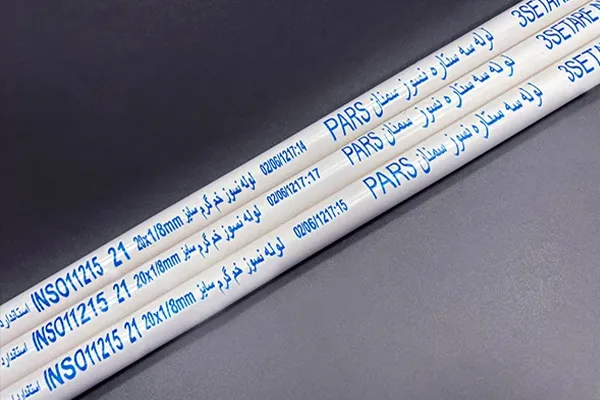 استاندارد INSO11215 21 20x1/8mm لوله نسوز خم گرم سایز 02/06/1217:14 PARS لوله سه ستاره نسوز سمنان 3SETARE
استاندارد INSO11215 21 20x1/8mm لوله نسوز خم گرم سایز 02/06/1217:17 PARS لوله سه ستاره نسوز سمنان 3SETARE
استاندارد INSO11215 21 20x1/8mm لوله نسوز خم گرم سایز 02/06/1217:15 PARS لوله سه ستاره نسوز سمنان 3SETARE